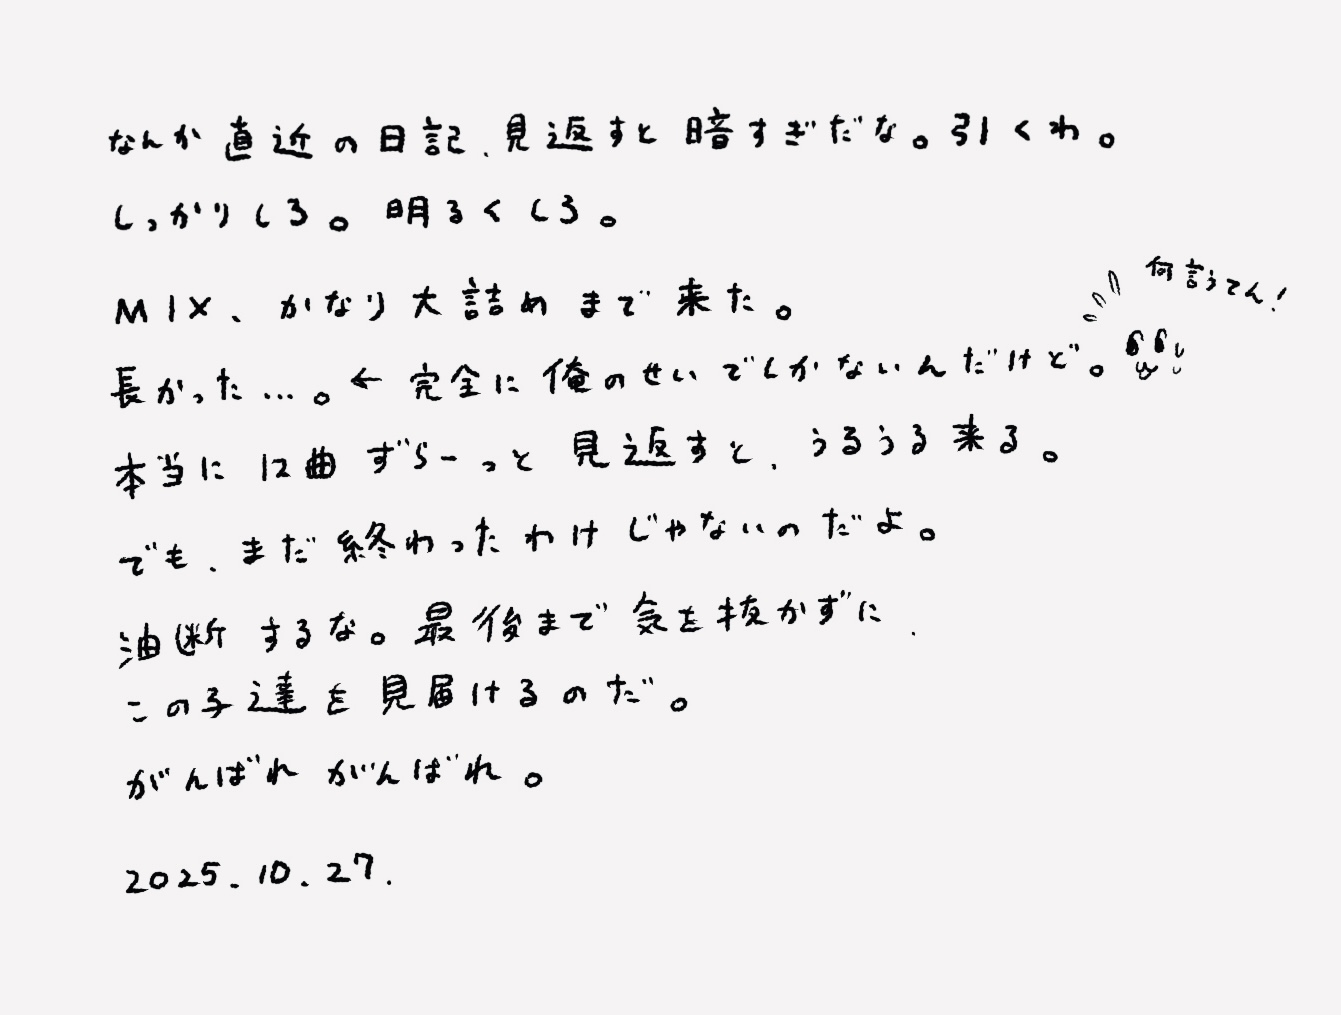 なんか直近の日記、見返すと暗すぎだな。引くわ。
しっかりしろ。明るくしろ。
MIX、かなり大詰めまで来た。
長かった...。← 完全に俺のせいでしかないんだけど。
何言うてん!
本当に12曲ずらーっと見返すと、うるうる来る。
でも、まだ終わったわけじゃないのだよ。
油断するな。最後まで気を抜かずに、
この子達を見届けるのだ。
がんばれがんばれ。
2025.10.27.